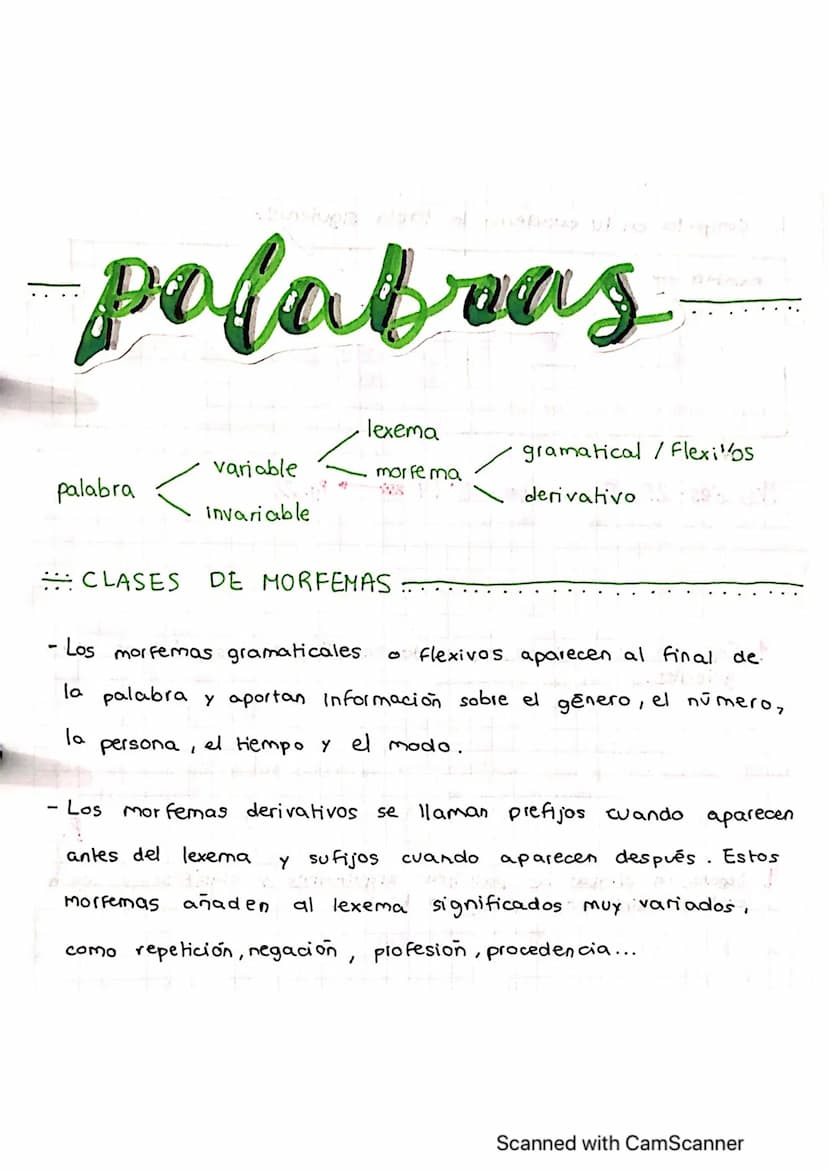 palabras
palabra
variable
invariable
lexema
morfema
gramatical / Flexivos
derivativo
CLASES DE MORFEMAS
- Los morfemas gramaticales o flexivos aparecen al final de
la palabra y aportan información sobre el género, el número,
la persona, el tiempo y el modo.
- Los morfemas derivativos se llaman prefijos cuando aparecen
antes del lexema y sufijos cuando aparecen después. Estos
morfemas añaden al lexema significados muy variados,
como repetición, negación, profesión, procedencia...
Scanned with CamScanner